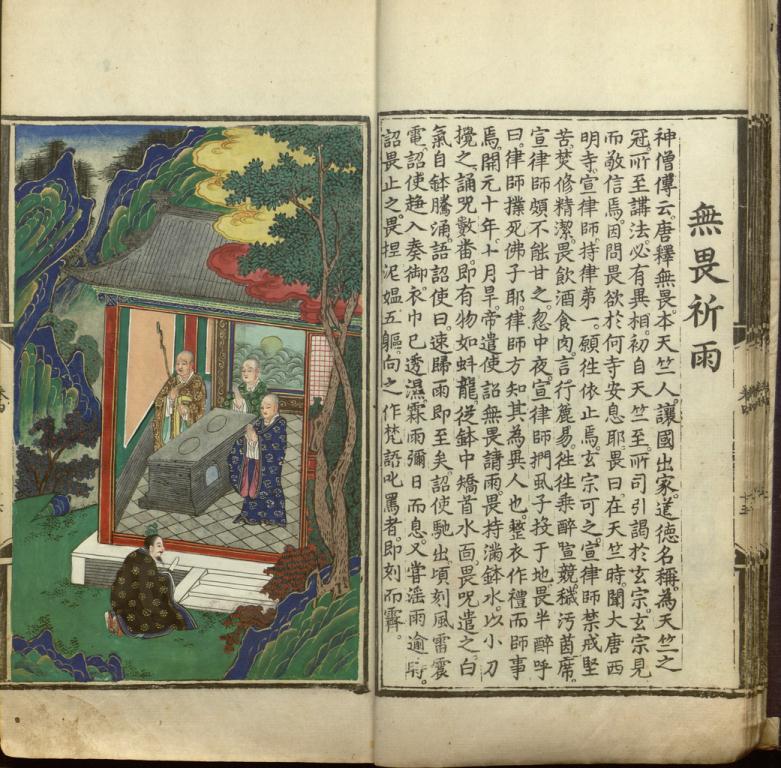 無畏祈雨
神僧傳云。唐釋無畏。本天竺人。讓國出家。道德名稱。為天竺之
冠。所至講法。必有異相。初自天竺至。所司引謁於玄宗。玄宗見
而敬信焉。因問畏欲於何寺安息耶。畏曰。在天竺時。聞大唐西
明寺宣律師。持律第一。願往依止焉。玄宗可之。宣律師禁戒堅
苦。焚修精潔。畏飲酒食肉。言行麄易。往往乘醉喧競。穢污茵席。
宣律師頗不能甘之。忽中夜。宣律師捫虱子投于地。畏半醉呼
曰。律師撲死佛子耶。律師方知其為異人也。整衣作禮而師事
焉。開元十年七月旱。帝遣使詔無畏請雨。畏持滿鉢水。以小刀
攪之。誦呪數番。即有物如蚪龍。從鉢中矯首水面。畏呪遣之。白
氣自鉢騰涌。語詔使曰。速歸。雨即至矣。詔使馳出。頃刻風雷震
電。詔使趨入奏御。衣巾已透濕。霖雨彌日而息。又嘗滛雨逾時。
詔畏止之。畏捏泥媼五軀。向之作梵語叱罵者。即刻而霽。